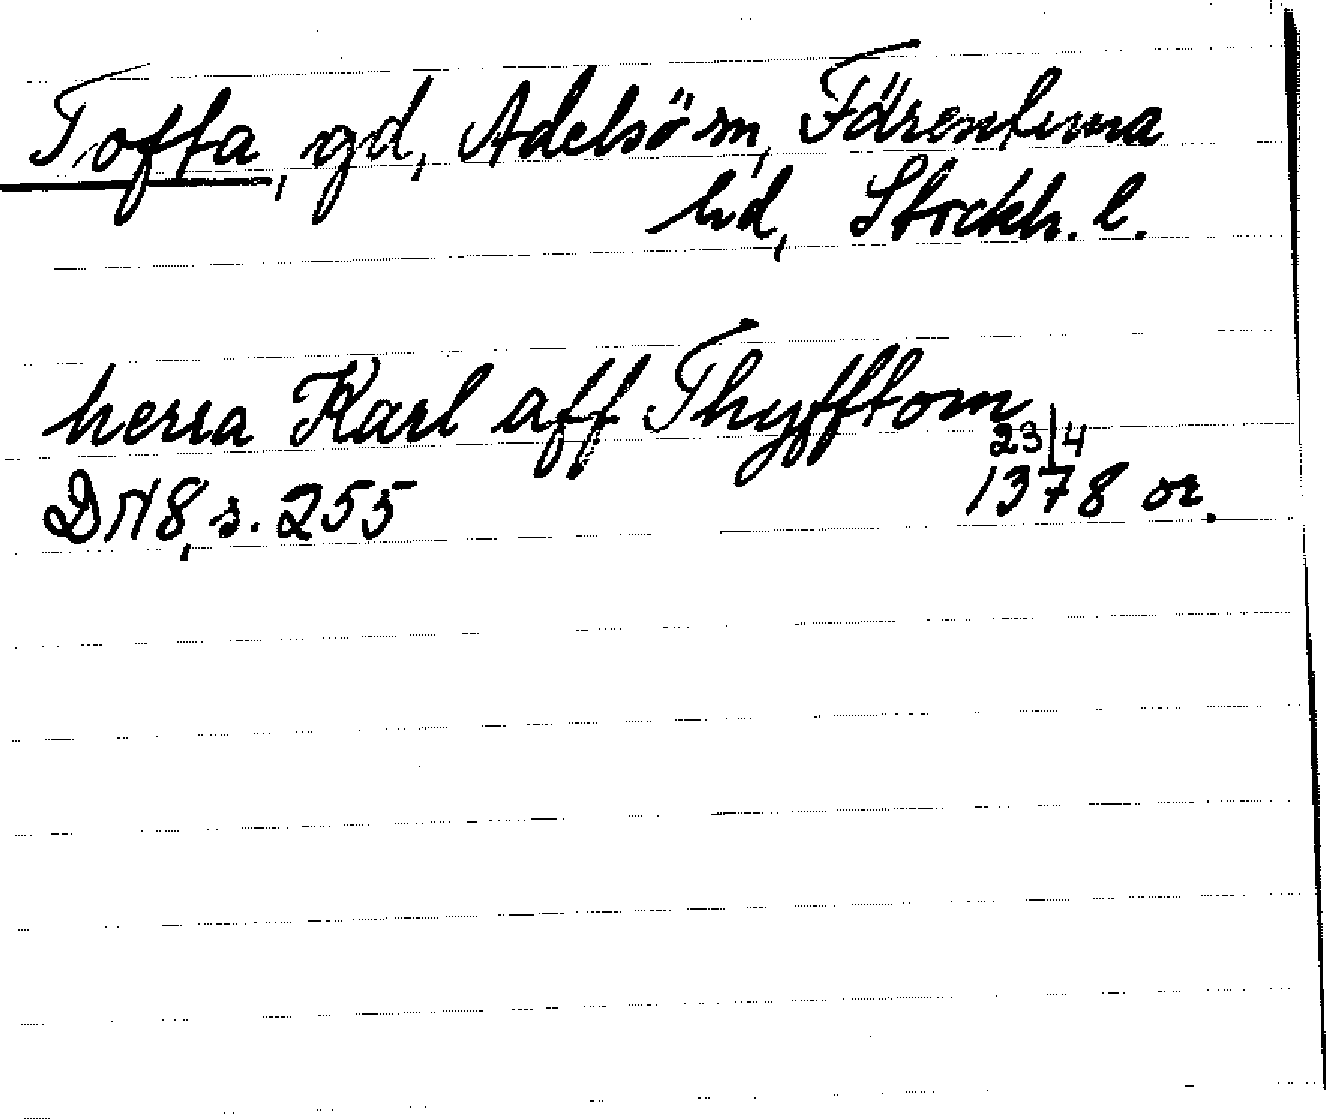 Toffa, gd, Adelsö sn, Färentuna
hd, Stockh. l.
herra Karl aff Thyfftom
23/4
DN 8, s. 255 1378 or.